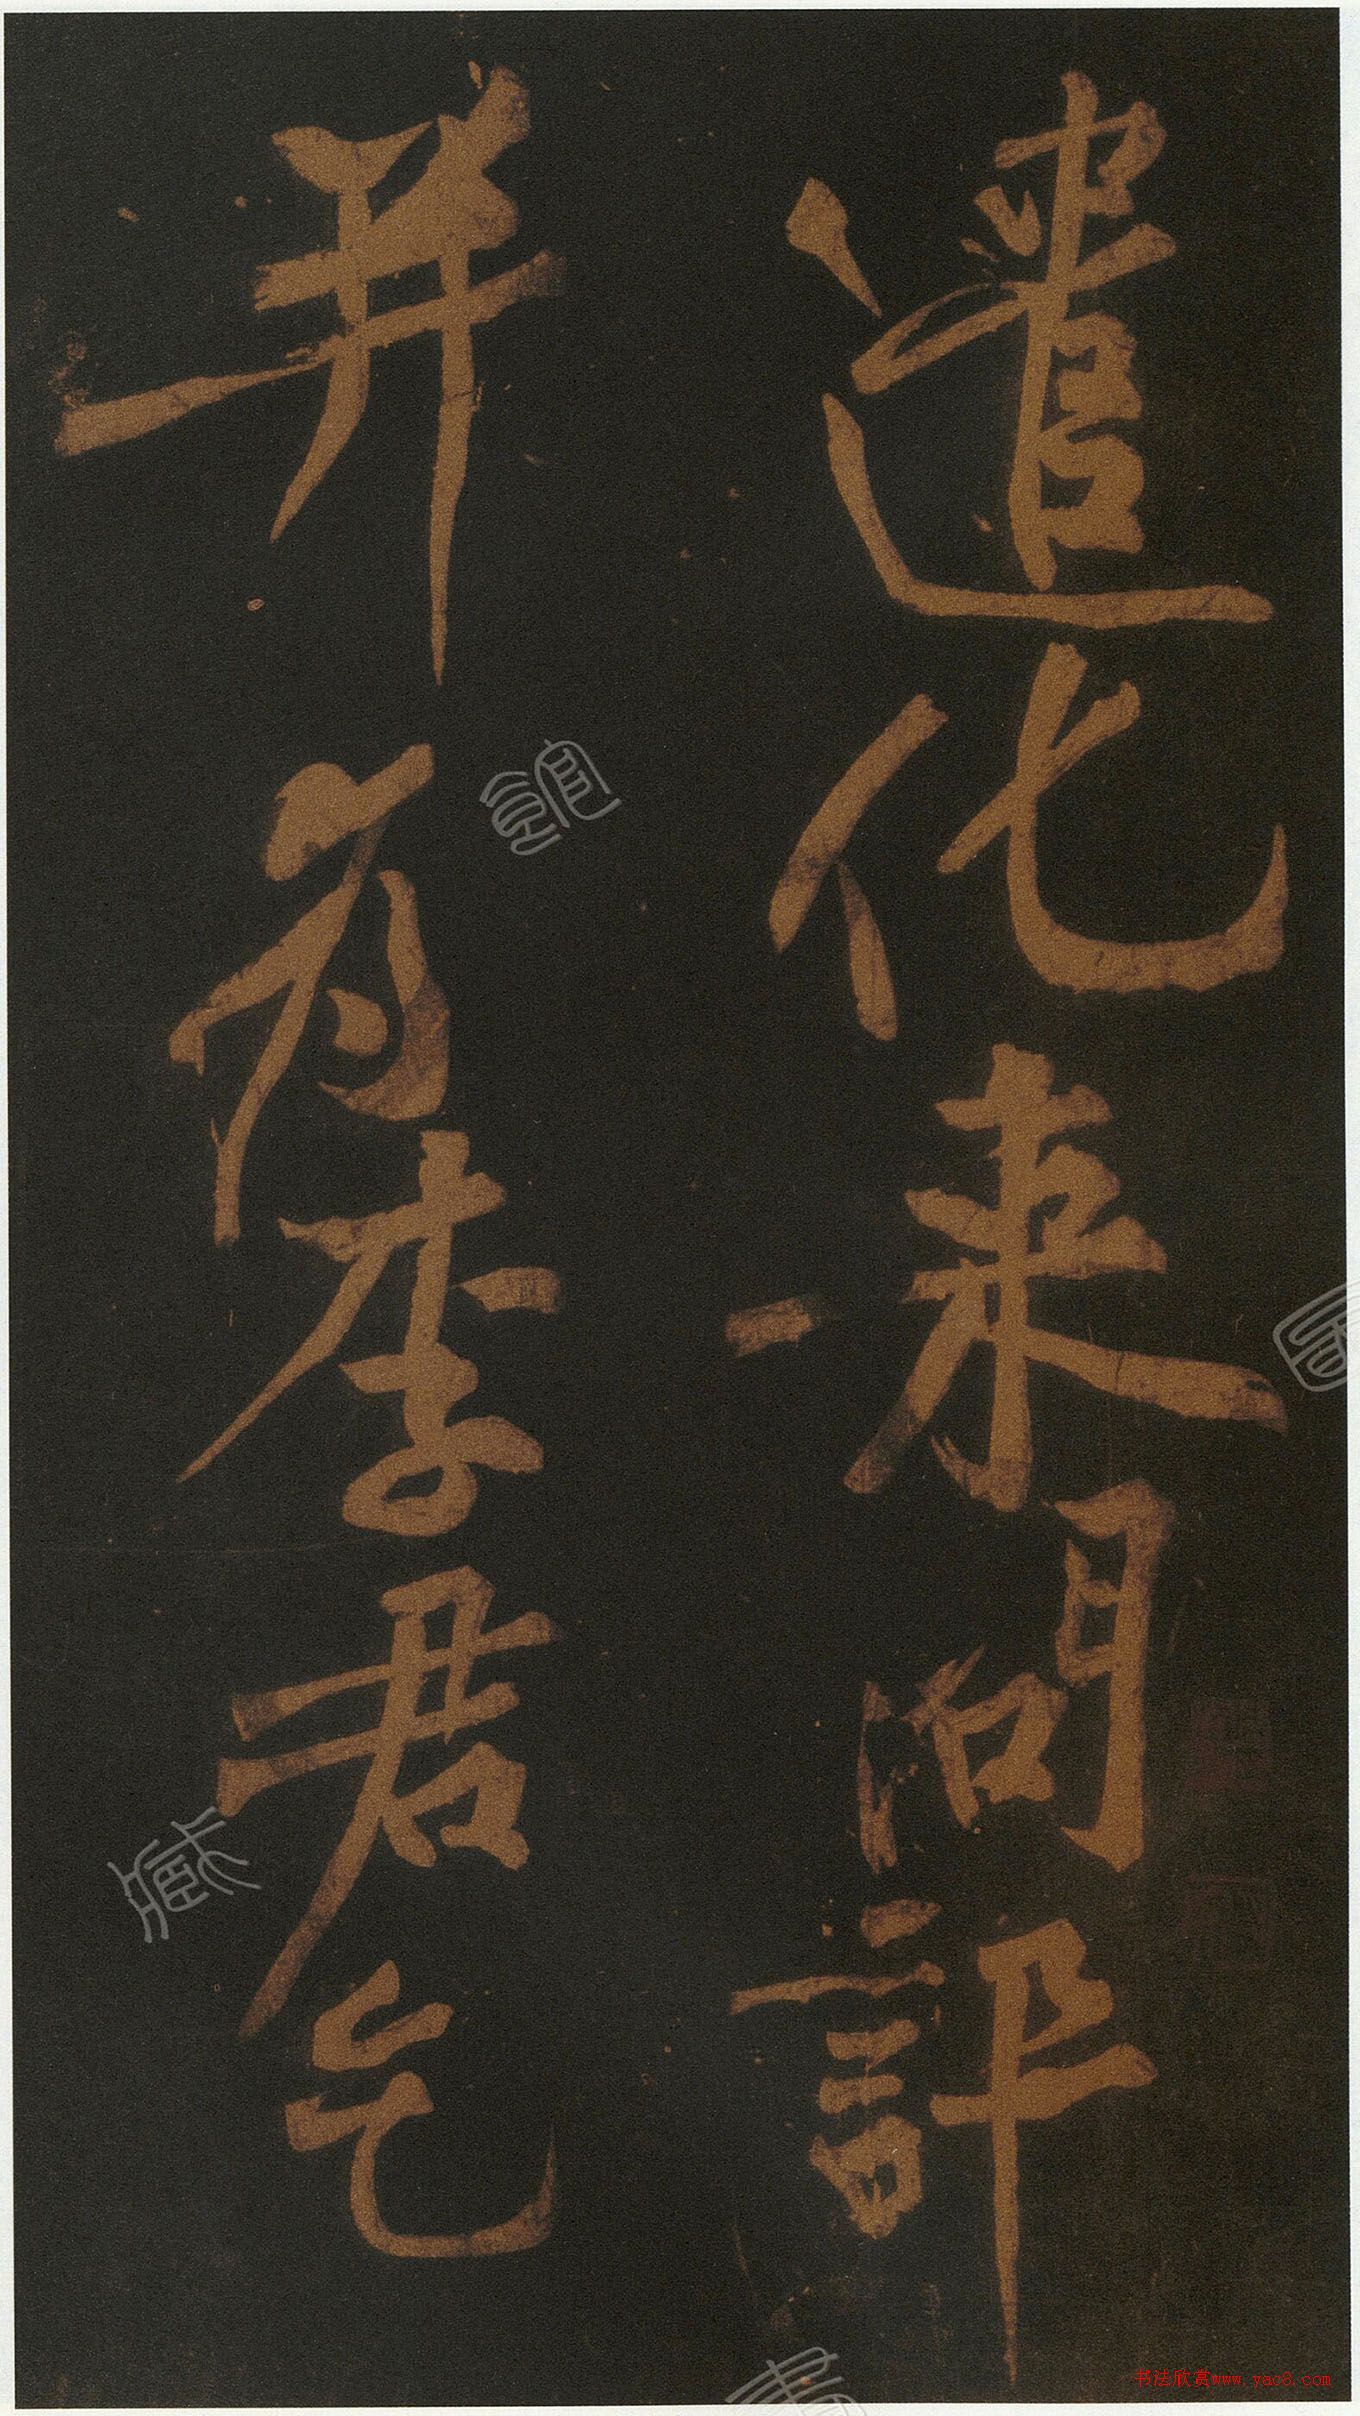 遣化来問訊
并为李君乞
书法欣赏www.yac8.com